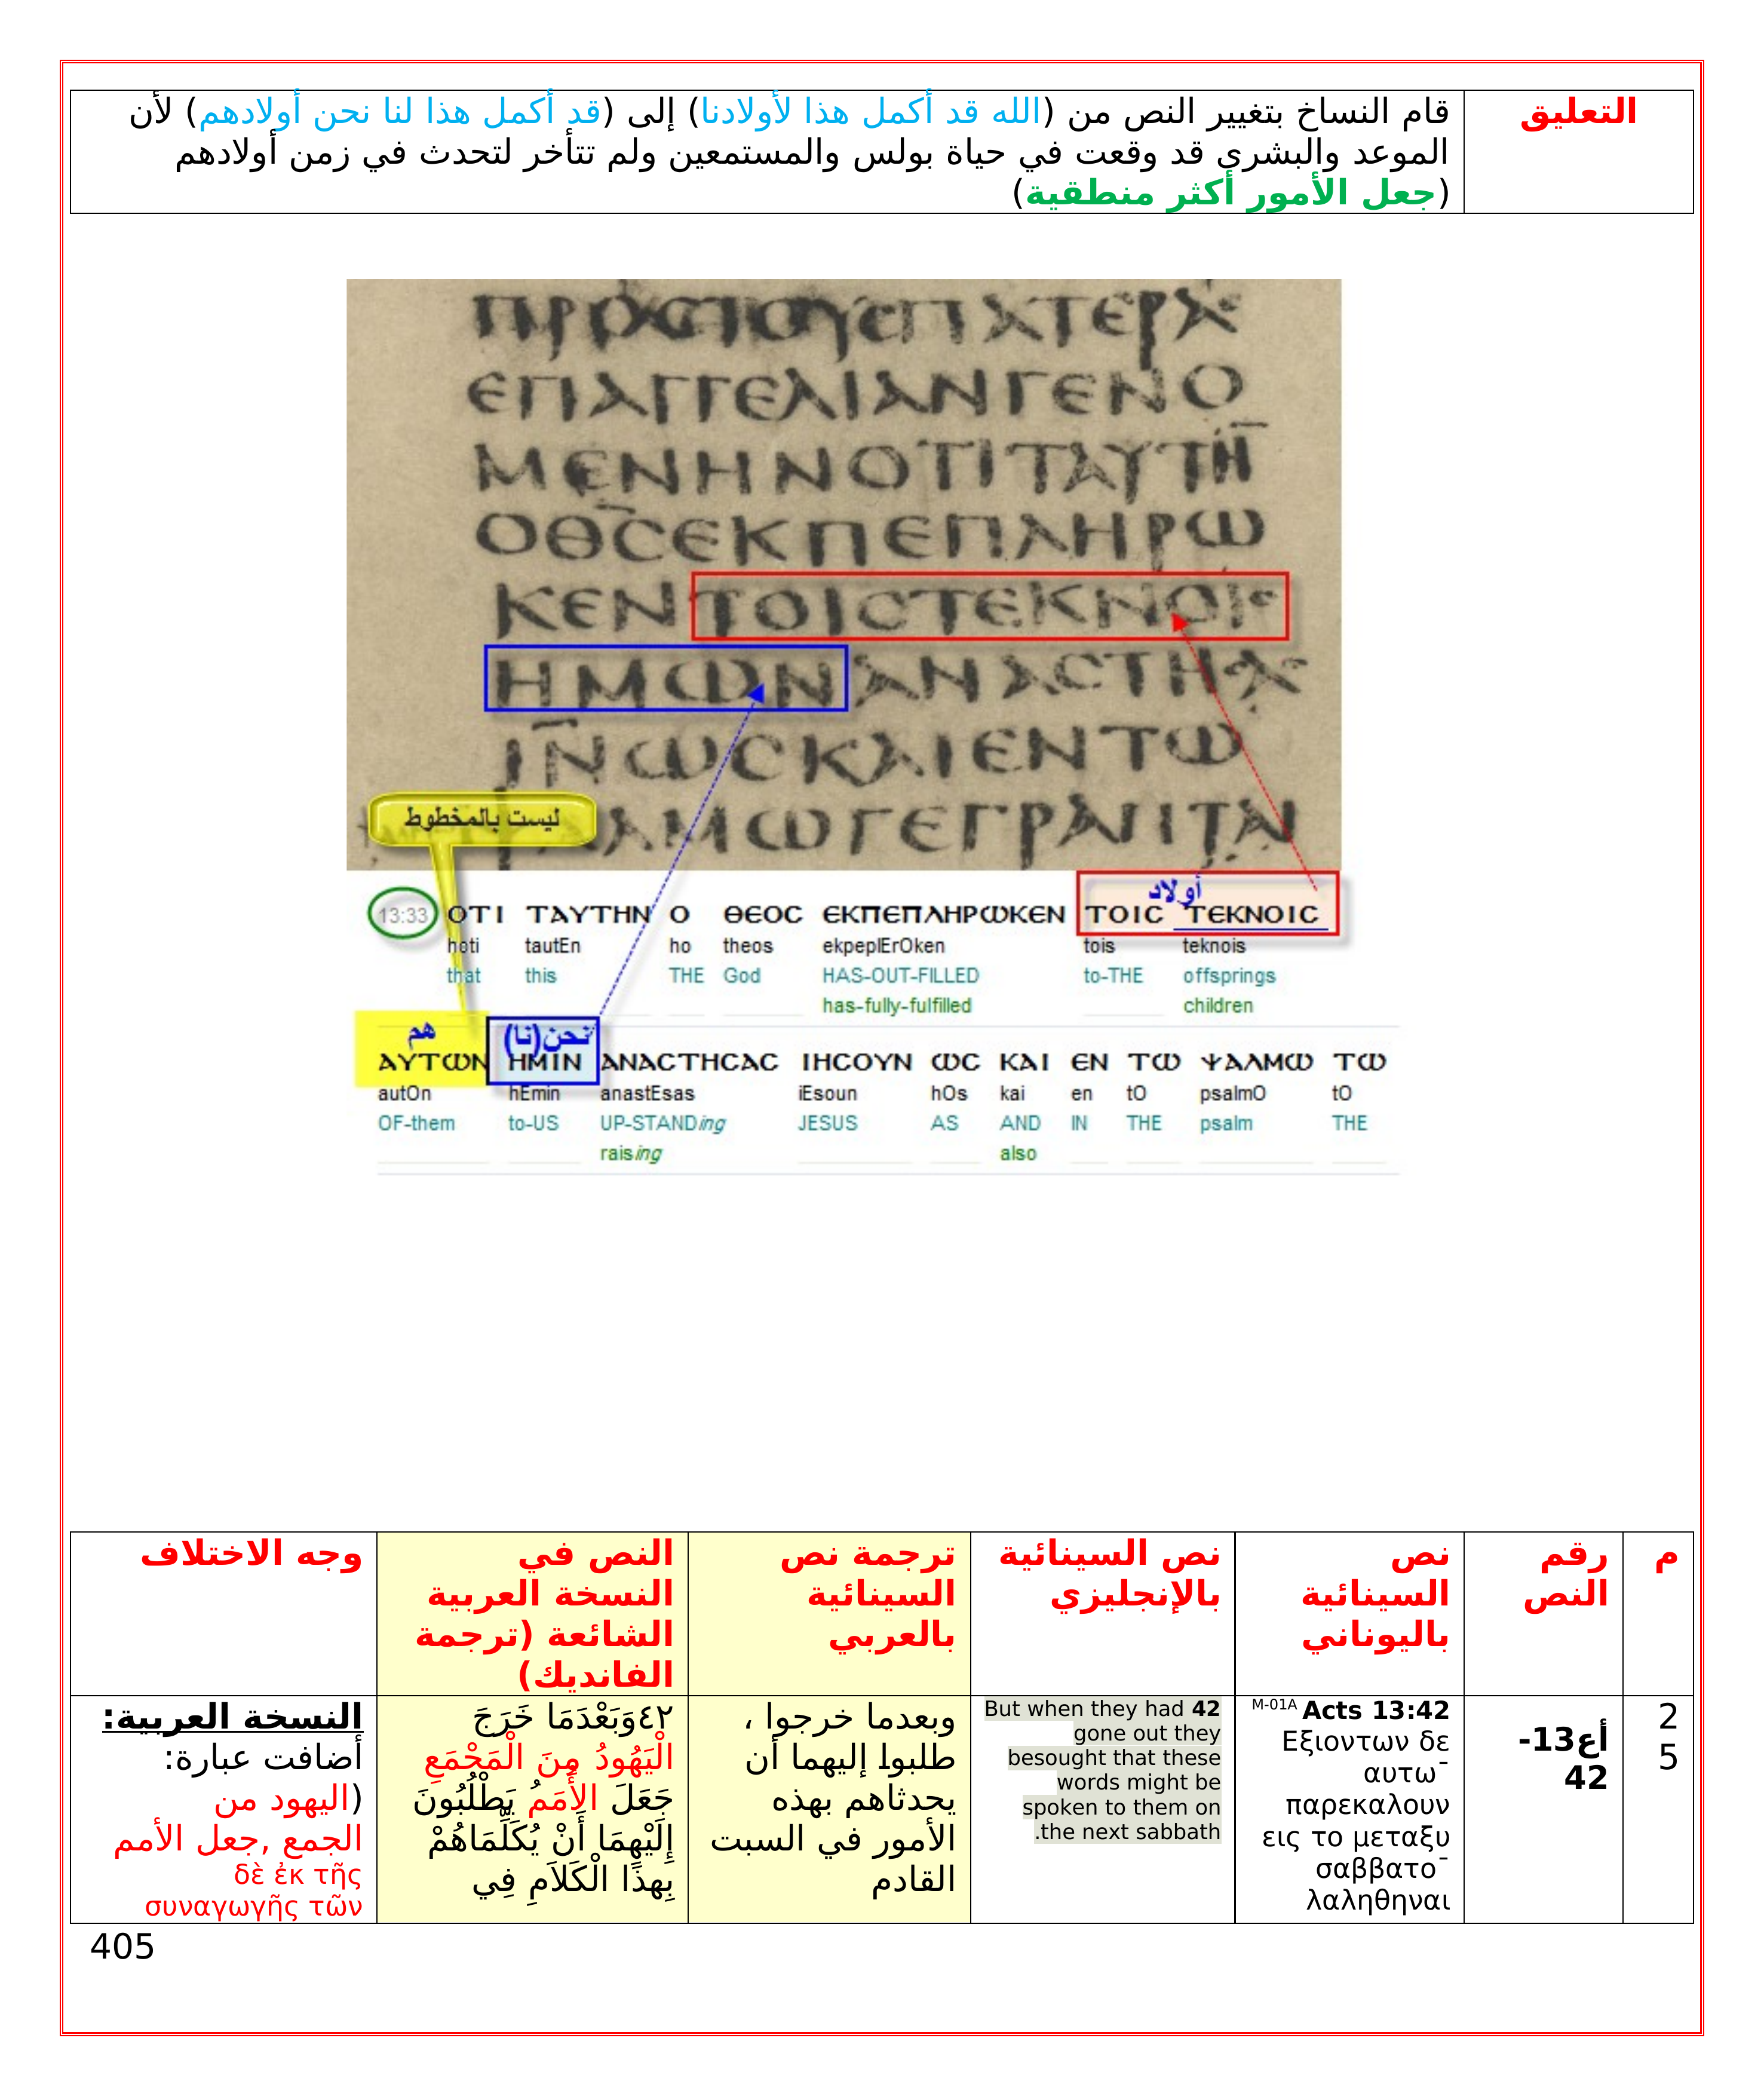 التعليق
قام النساخ بتغيير النص من (الله قد أكمل هذا لأولادنا) إلى (قد أكمل هذا لنا نحن أولادهم) لأن
الموعد والبشرى قد وقعت في حياة بولس والمستمعين ولم تتأخر لتحدث في زمن أولادهم
(جعل الأمور أكثر منطقية)
ΠΡΟΣΤΟΥϹΠΑΤΕΡΑϹ
ΕΠΑΓΓΕΛΙΑΝΓΕΝΟ
ΜΕΝΗΝΟΤΙΤΑΥΤΗ̅
ΟΘ̅ϹΕΚΠΕΠΛΗΡΩ
ΚΕΝΤΟΙϹΤΕΚΝΟΙϹ
ΗΜΩΝΑΝΑϹΤΗϹΑϹ
ΙΝ̅ΩϹΚΑΙΕΝΤΩ
ΑΛΜΩΓΕΓΡΑΠΤΑΙ
ليست بالمخطوط
أولاد
13:33 ΟΤΙ ΤΑΥΤΗΝ Ο ΘΕΟϹ ΕΚΠΕΠΛΗΡΩΚΕΝ ΤΟΙϹ ΤΕΚΝΟΙϹ
hoti tautEn ho theos ekpeplErOken tois teknois
that this THE God HAS-OUT-FILLED to-THE offsprings
has-fully-fulfilled children
هم نحن(نا)
ΑΥΤΩΝ ΗΜΙΝ ΑΝΑϹΤΗϹΑϹ ΙΗϹΟΥΝ ΩϹ ΚΑΙ ΕΝ ΤΩ ΨΑΛΜΩ ΤΩ
autOn hEmin anastEsas iEsoun hOs kai en tO psalmO tO
OF-them to-US UP-STANDing JESUS AS AND IN THE psalm THE
raising also
م
رقم
النص
نص
السينائية
باليوناني
نص السينائية
بالإنجليزي
ترجمة نص
السينائية
بالعربي
النص في
النسخة العربية
الشائعة (ترجمة
الفانديك)
وجه الاختلاف
2
5
أع13-
42
M-01A Acts 13:42
Εξιοντων δε
αυτω¯
παρεκαλουν
εις το μεταξυ
σαββατο¯
λαληθηναι
42 But when they had
gone out they
besought that these
words might be
spoken to them on
the next sabbath.
وبعدما خرجوا ،
طلبوا إليهما أن
يحدثاهم بهذه
الأمور في السبت
القادم
٤٢وَبَعْدَمَا خَرَجَ
الْيَهُودُ مِنَ الْمَجْمَعِ
جَعَلَ الأُمَمُ يَطْلُبُونَ
إِلَيْهِمَا أَنْ يُكَلِّمَاهُمْ
بِهذَا الْكَلاَمِ فِي
النسخة العربية:
أضافت عبارة:
(اليهود من
الجمع ,جعل الأمم
δὲ ἐκ τῆς
συναγωγῆς τῶν
405